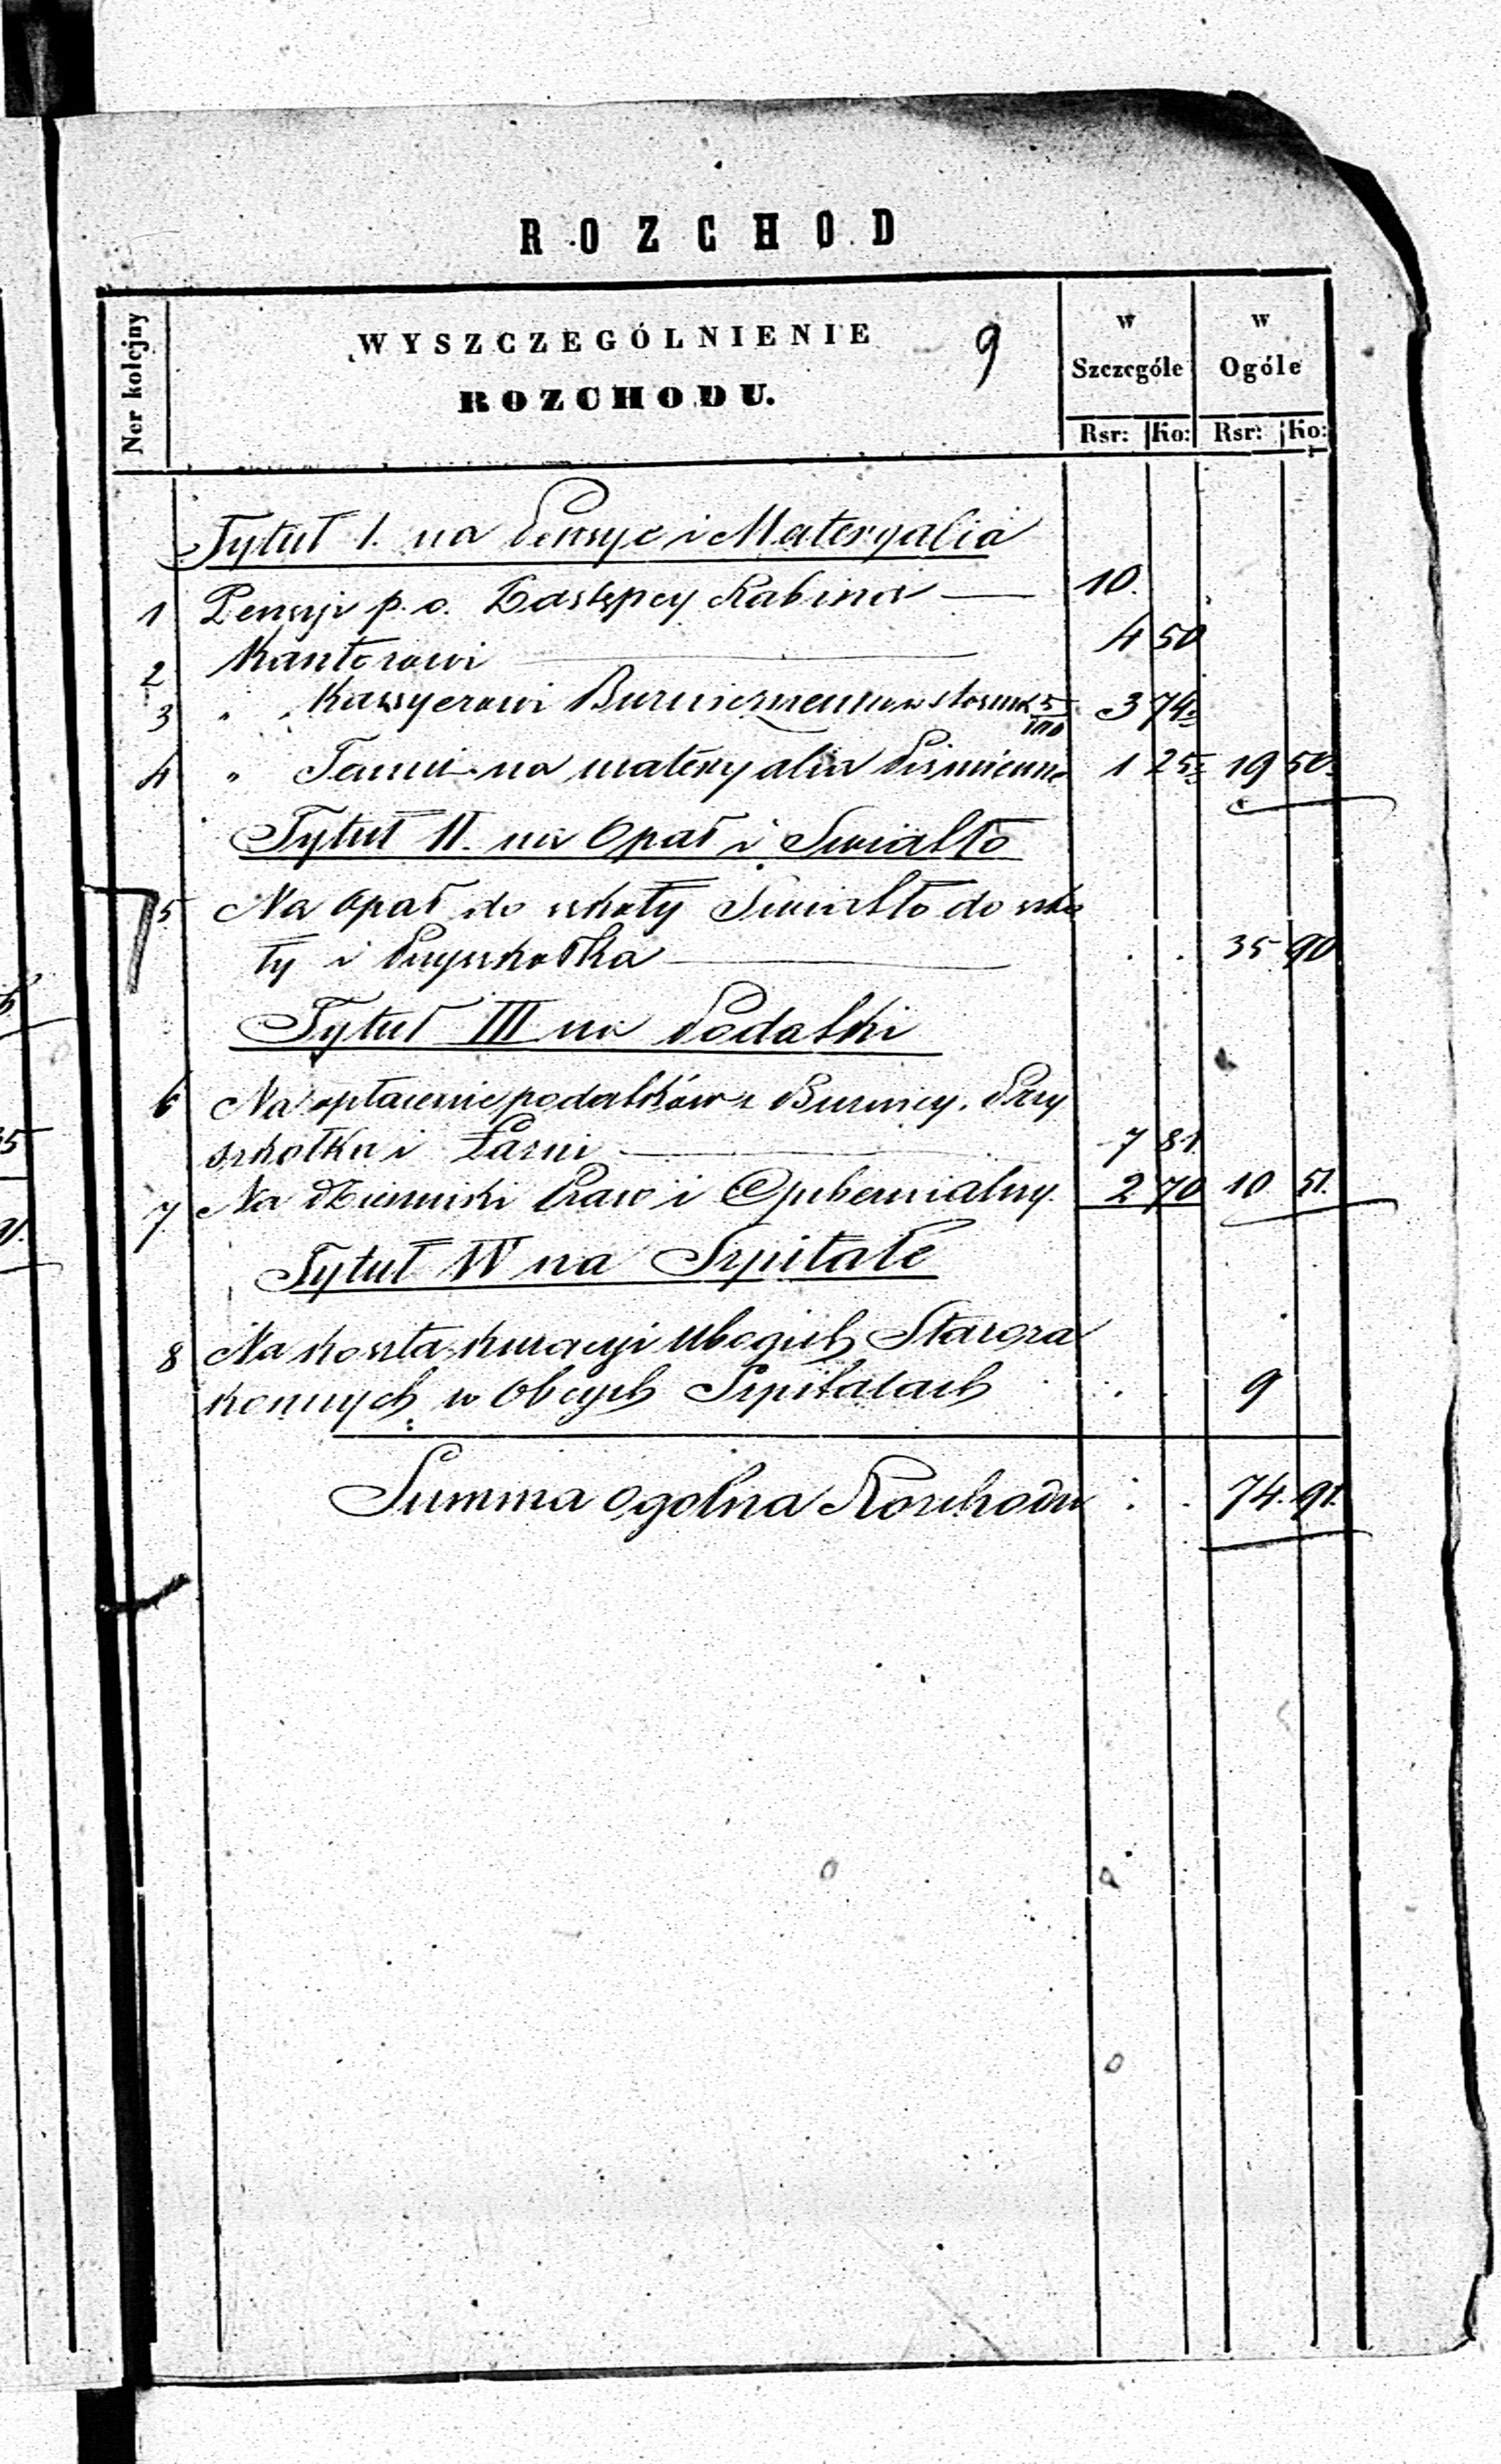 ROZCHOD
Ner kolejny
WYSZCZEGÓLNIENIE 9
ROZCHODU.
w Szczególe
w Ogóle
Rsr: Ko: Rsr: Ko:
Tytuł I. na Pensye i Materyalia
1 Pensyi p. o. Zastępcy Rabina — 10.
2 Kantorowi — 4 50
3 " " Kassyerowi Bużniczemu w stosun 5/100 3 74½
4 " Temuż na materyalia Piśmienne 1 25½ 19 50.
Tytuł II. na Opał i Swiatło
5 Na opał do szkoły Swiatło do szko
ły i Przyszkołka — . . 35 90
Tytuł III na Podatki
6 Na opłacenie podatków z Bużnicy. Przy
szkołka i Łazni — 7 81.
7 Na Dzienniki Praw i Gubernialny. 2 70 10 51.
Tytuł IV na Szpitale
8 Na koszta kuracyi Ubogich Staroza
konnych w Obcych Szpitalach . . 9
Summa ogolna Rozchodu . . 74. 91.